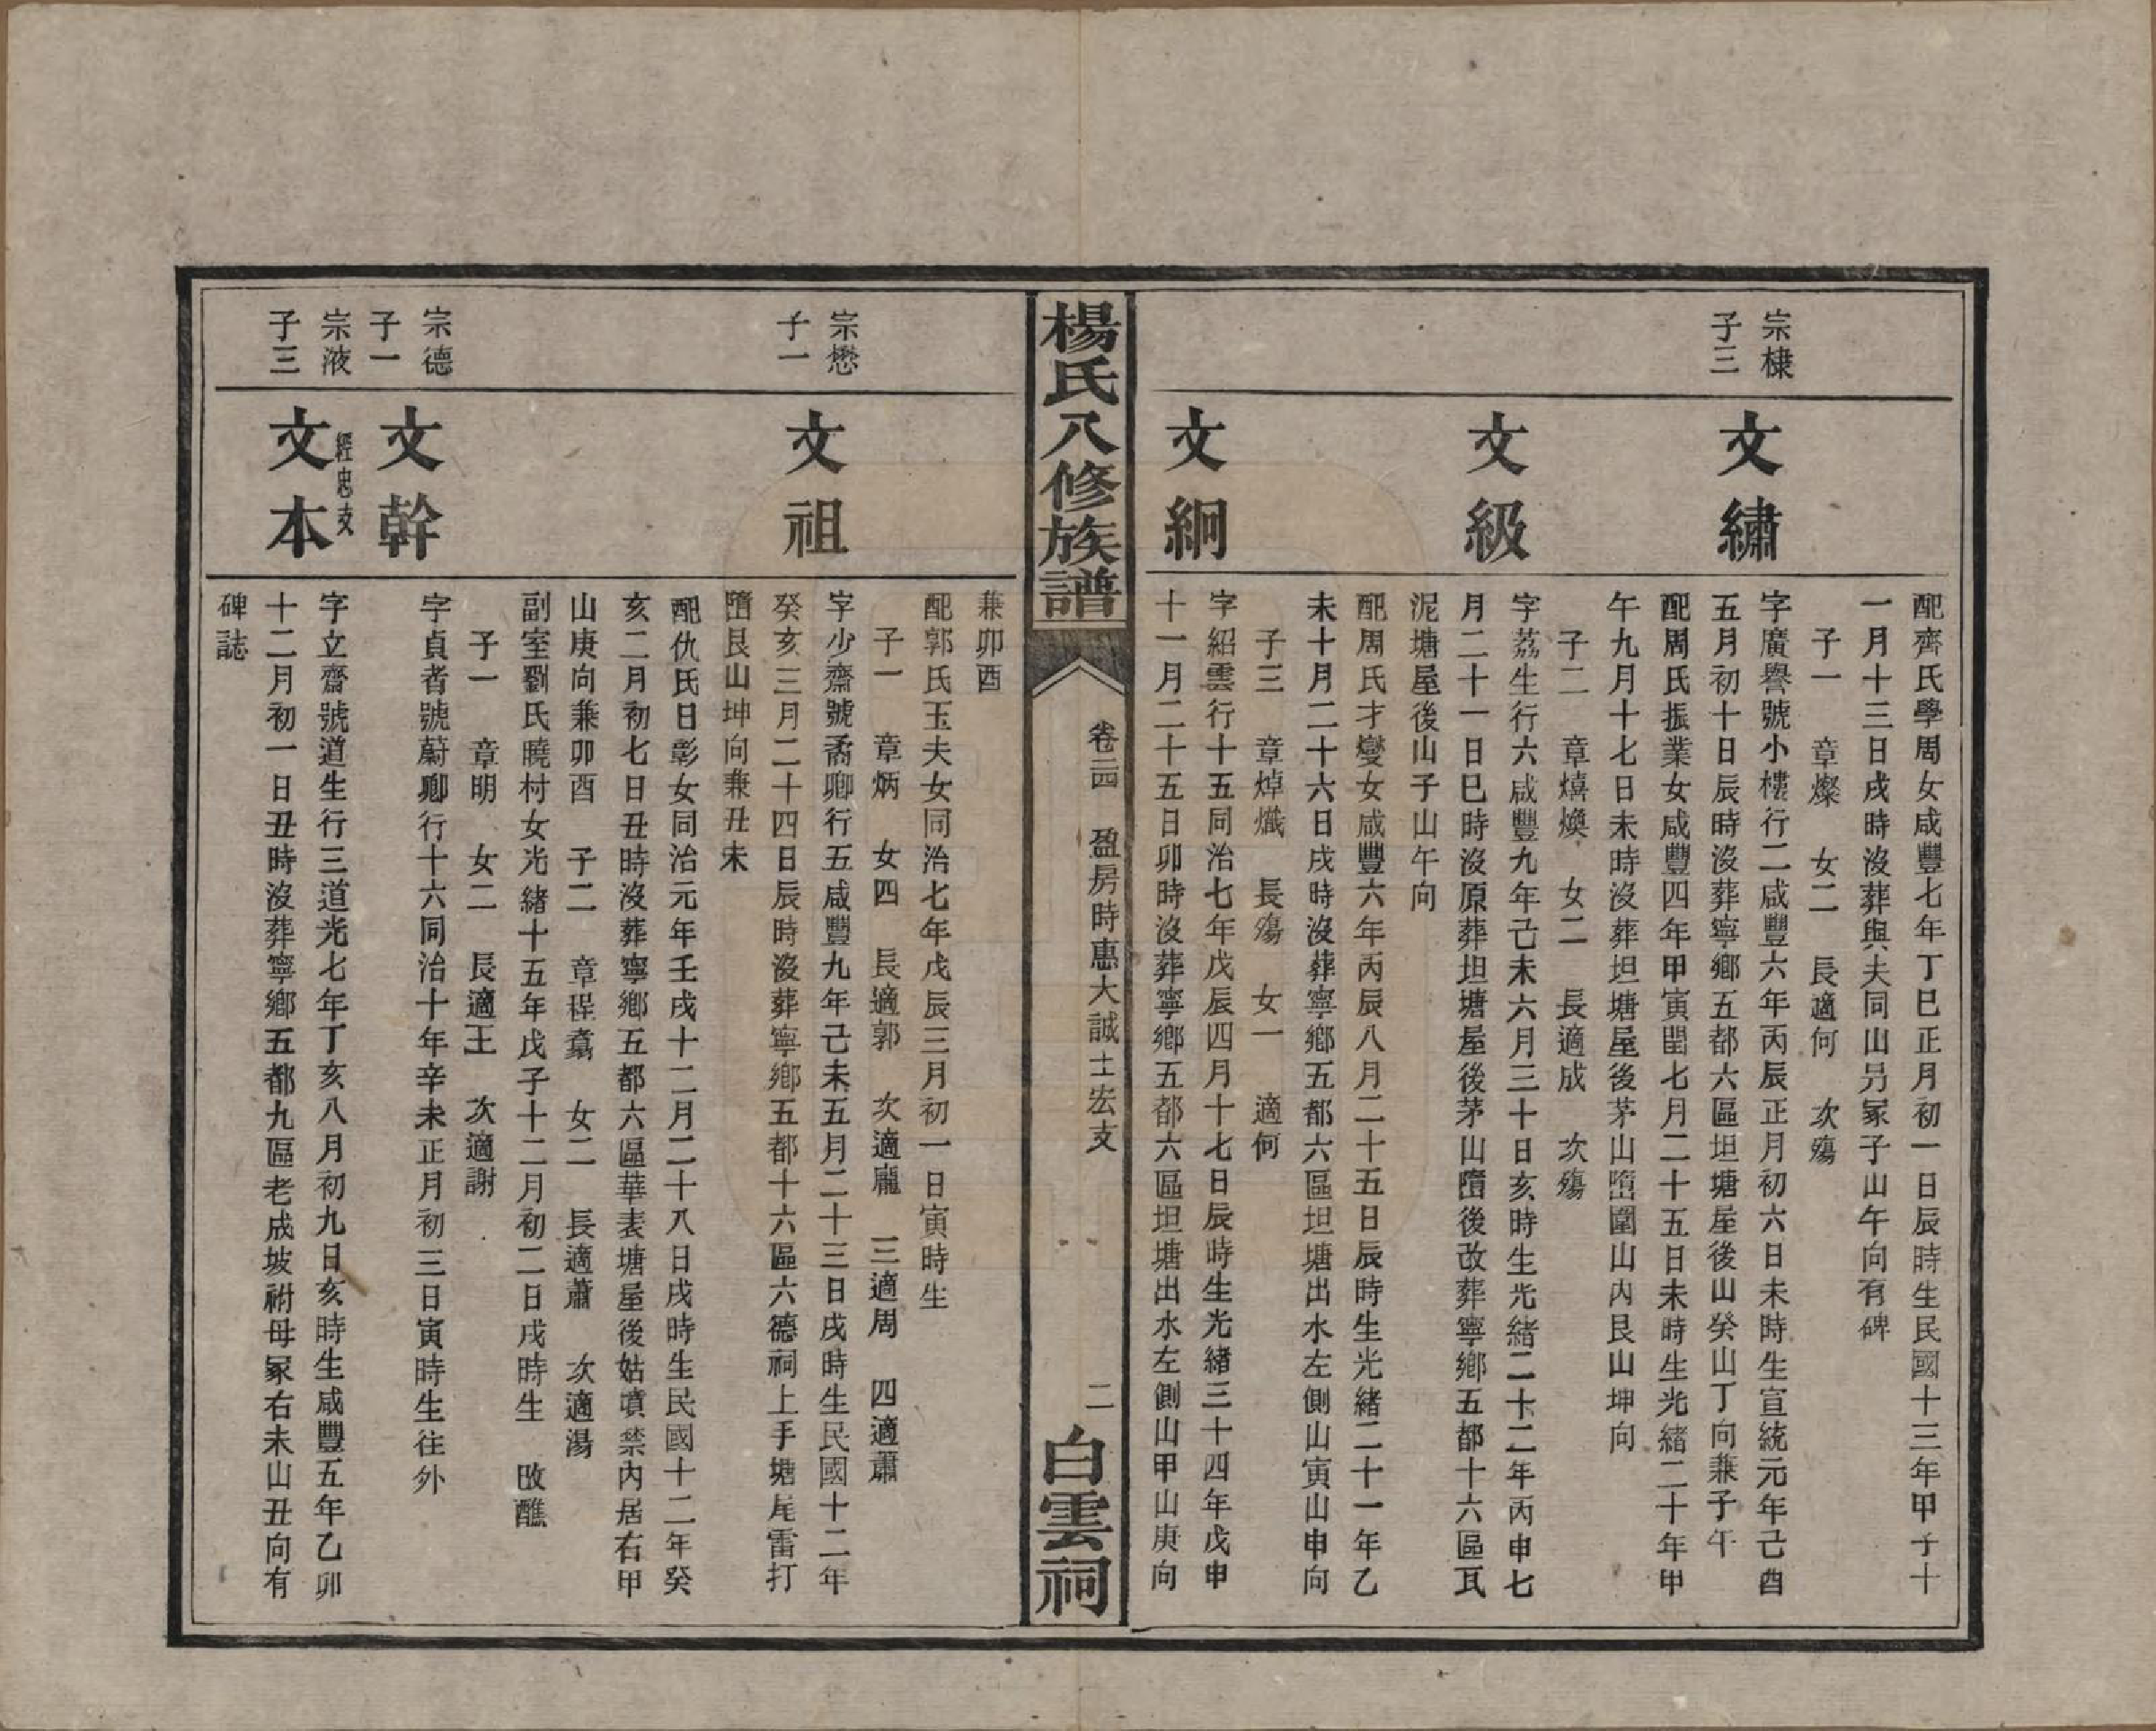 配齊氏學周女咸豐七年丁巳正月初一日辰時生民國十三年甲子十
一月十三日戌時沒葬與夫同山另冢子山午向有碑
子一 章燦 女二 長適何 次殤
宗棣
子三
文繡
字廣譽號小樓行二咸豐六年丙辰正月初六日未時生宣統元年己酉
五月初十日辰時沒葬寧鄉五都六區坦塘屋後山癸山丁向兼子午
配周氏振業女咸豐四年甲寅閏七月二十五日未時生光緒二十年甲
午九月十七日未時沒葬坦塘屋後茅山墮圍山內艮山坤向
子二 章熺煥 女二 長適成 次殤
文級
字荔生行六咸豐九年己未六月三十日亥時生光緒二十二年丙申七
月二十一日巳時沒原葬坦塘屋後茅山墮後改葬寧鄉五都十六區瓦
泥塘屋後山子山午向
配周氏才變女咸豐六年丙辰八月二十五日辰時生光緒二十一年乙
未十月二十六日戌時沒葬寧鄉五都六區坦塘出水左側山寅山申向
子三 章焯熾 長殤 女一 適何
文絅
字紹雲行十五同治七年戊辰四月十七日辰時生光緒三十四年戊申
十一月二十五日卯時沒葬寧鄉五都六區坦塘出水左側山甲山庚向
楊氏八修族譜
卷二四 盈房時惠大誠士宏支
二
白雲祠
兼卯酉
配郭氏玉夫女同治七年戊辰三月初一日寅時生
子一 章炳 女四 長適郭 次適龐 三適周 四適蕭
宗懋
子一
文祖
字少齋號矞卿行五咸豐九年己未五月二十三日戌時生民國十二年
癸亥三月二十四日辰時沒葬寧鄉五都十六區六德祠上手塘尾雷打
墮艮山坤向兼丑未
配仇氏日彰女同治元年壬戌十二月二十八日戌時生民國十二年癸
亥二月初七日丑時沒葬寧鄉五都六區華表塘屋後姑墳禁內居右甲
山庚向兼卯酉 子二 章程 女二 長適蕭 次適湯
副室劉氏曉村女光緒十五年戊子十二月初二日戌時生 改醮
子一 章明 女二 長適王 次適謝
宗德
子一
文幹
字貞者號蔚卿行十六同治十年辛未正月初三日寅時生往外
經忠支
宗液
子三
文本
字立齋號道生行三道光七年丁亥八月初九日亥時生咸豐五年乙卯
十二月初一日丑時沒葬寧鄉五都九區老成坡祔母冢右未山丑向有
碑誌